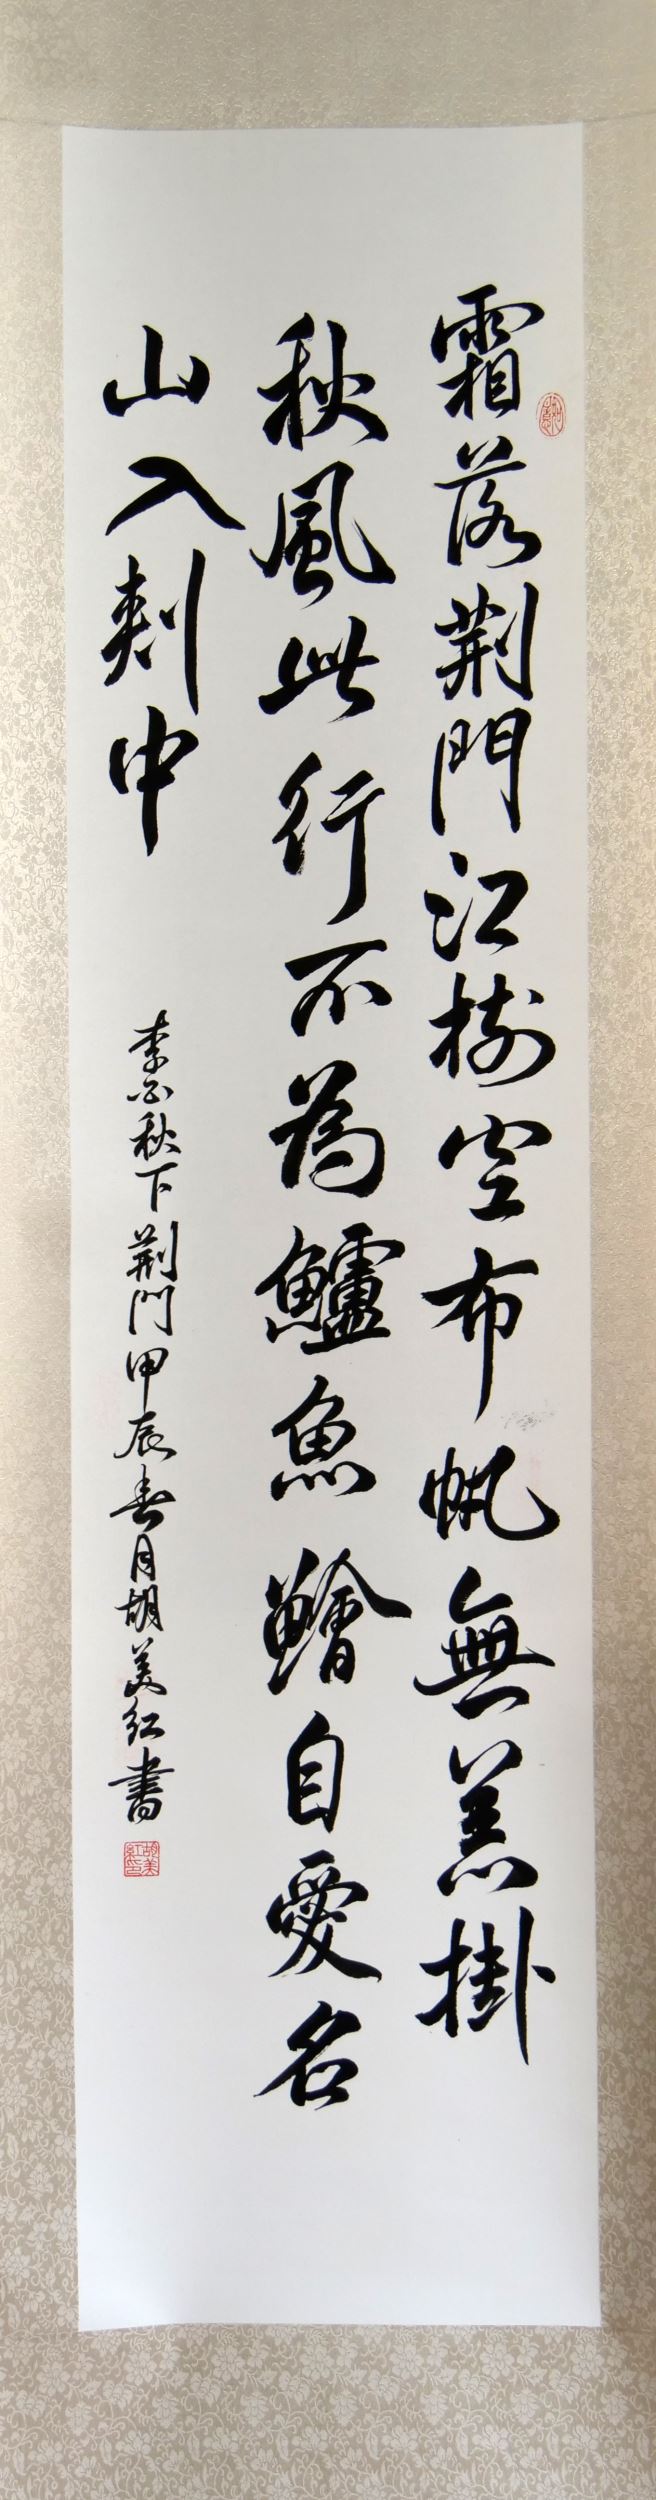 霜落荊門江樹空布帆無恙掛
秋風此行不為鱸魚鱠自愛名
山入剡中
李白秋下荊門甲辰春月胡美紅書
胡美紅印